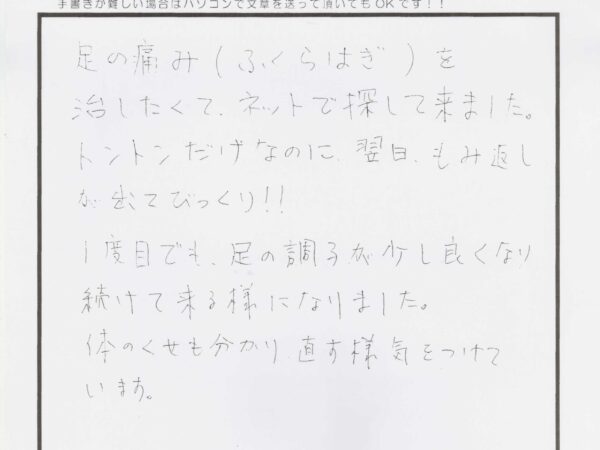 手書きが難しい場合はパソコンで文章を送って頂いてもOKです！！
足の痛み(ふくらはぎ)を
治したくて、ネットで探して来ました。
トントンだけなのに、翌日、もみ返し
が出てびっくり!!
1度目でも、足の調子が少し良くなり
続けて来る様になりました。
体のくせも分かり、直す様気をつけて
います。